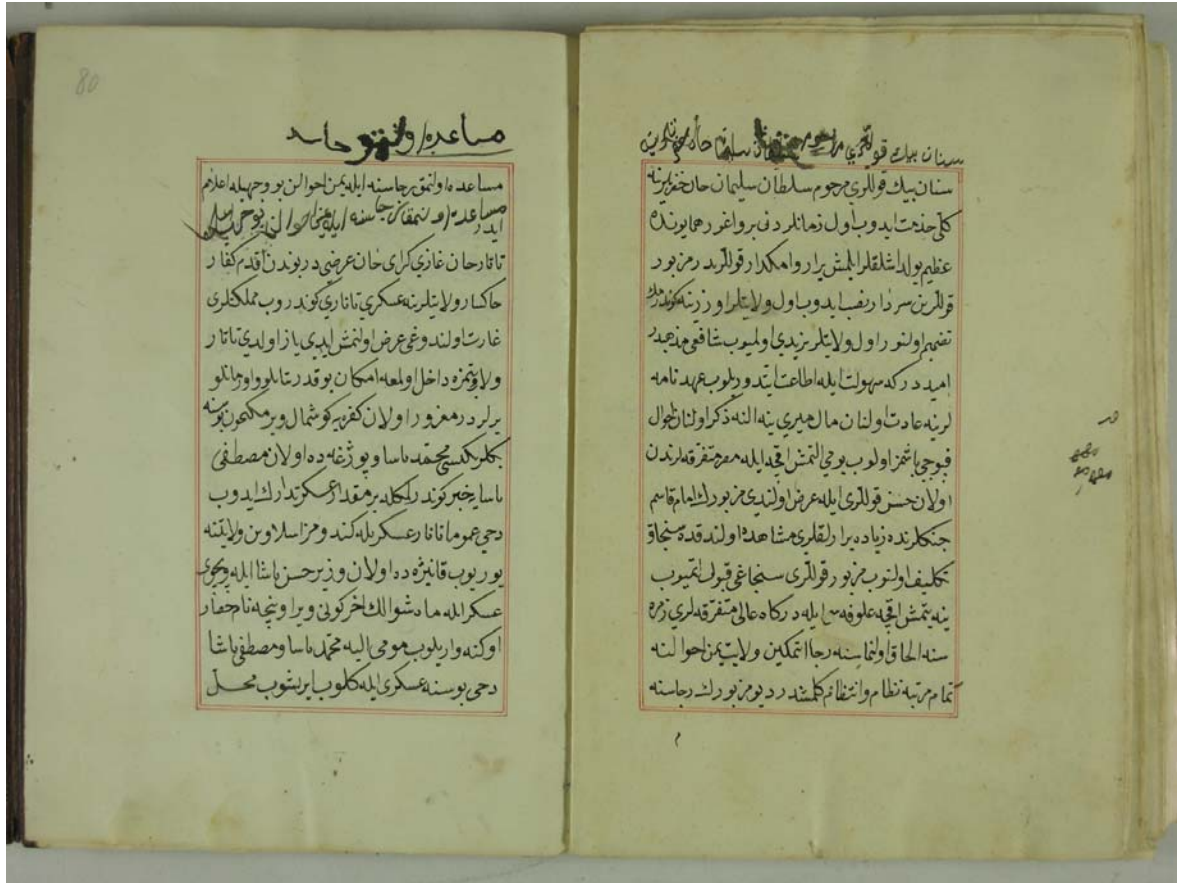 سنان بيك قوللري مرحوم
سنان بيك قوللري مرحوم سلطان سليمان خان حضرتلرينه
كلى خدمت ايدوب اول زمانلردنبرو اغور همايونده
عظيم يولداشلقلر ايلمش يرار و امكدار قوللريدر مزبور
قوللرين سردار نصب ايدوب اول ولايتلر اوزرينه كوندرمك
تصميم اولنور اول ولايتلر يزيدى اولميوب شافعى مذهبدر
اميددر كه سهولت ايله اطاعت ايتدوريلوب عهدنامه
لرينه عادت اولنان مال ميرى ينه النه ذكر اولنان احوال
قپوجى باشمز اولوب يومى التمش اقچه ايله مصر متفرقه لرندن
اولان حسن قوللرى ايله عرض اولندى مزبورك امام قاسم
جنكلرنده زياده يرارلقلرى مشاهده اولندقده سنجاق
تكليف اولنوب مزبور قوللرى سنجاغى قبول ايتميوب
ينه يتمش اقچه علوفه سى ايله دركاه عالى متفرقه لرى زمره
سنه الحاق اولنماسنه رجا اتمكين ولايت يمن احوالنه
تمام مرتبه نظام و انتظام كلمشدر ديو مزبورك رجاسنه
80
مساعده اولنمق رجاسنه
مساعده اولنمق رجاسنه ايله يمن احوالن بو وجهيله اعلام
ايدر
تاتار خان غازى كراى خان عرضى در بوندن اقدم كفار
خاكسار ولايتلرينه عسكرى تاتارى كوندروب مملكتلرى
غارت اولندوغى عرض اولنمش ايدى ياز اولدى تاتار
ولايتمزه داخل اولمغه امكان يوقدر
يرلردر مغرور اولان كفره يه كوشمال ويرمكيچون بوسنه
بكلربكيسى محمد پاشا و پوژغه ده اولان مصطفى
پاشايه خبر كوندرلمكله بر مقدار عسكر تدارك ايدوب
دخى عموما تاتار عسكريله كندومز اسلاوين ولايتنه
يوريوب قانيژه ده اولان وزير حسن پاشا ايله
عسكر ايله ماه شوالك اخر كونى ويراويتچه نام حصار
اوكنه واريلوب مومى اليه محمد پاشا و مصطفى پاشا
دخى بوسنه عسكرى ايله كلوب ايريشوب محل